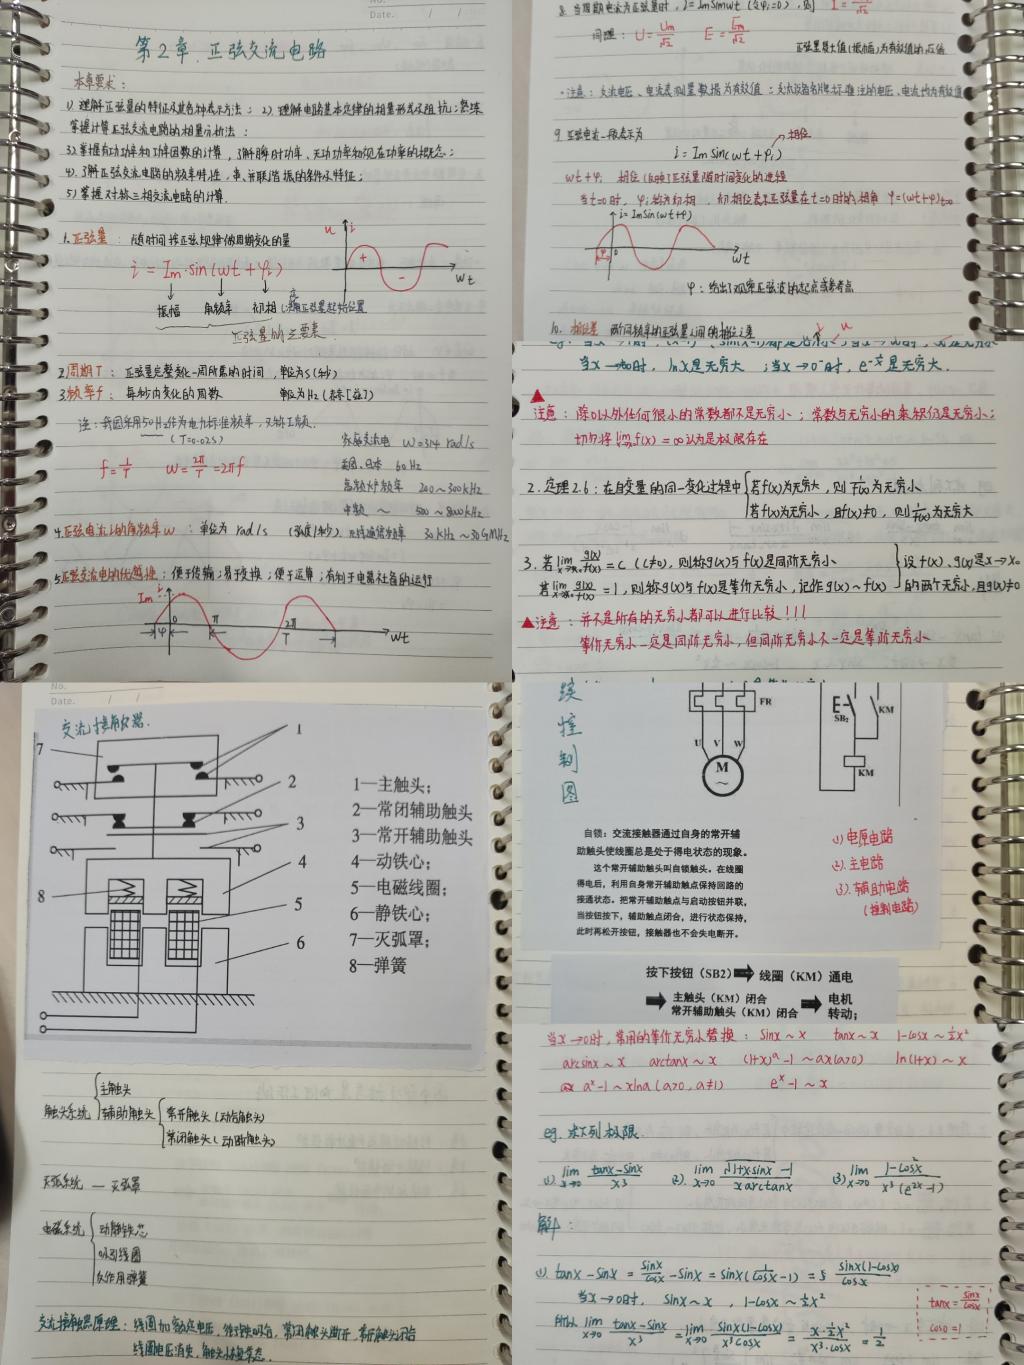 Date.
第2章.正弦交流电路
本章要求：
1).理解正弦量的特征及其各种表示方法；2).理解电路基本定律的相量形式及阻抗；熟练
掌握计算正弦交流电路的相量分析法；
3).掌握有功功率和功率因数的计算，了解瞬时功率、无功功率和视在功率的概念；
4).了解正弦交流电路的频率特性，串、并联谐振的条件及特征；
5).掌握对称三相交流电路的计算.
1.正弦量：随时间按正弦规律做周期变化的量
i = Im·sin(wt+φi)
振幅 角频率 初相
正弦量的三要素.
u i + - wt
2.周期T：正弦量完整变化一周所需的时间，单位为s(秒)
3.频率f：每秒内变化的周数 单位为Hz(赫[兹])
注：我国采用50Hz作为电力标准频率，又称工频.
(T=0.02s)
f=1/T w=2π/T=2πf
w=314 rad/s
美国、日本 60Hz
高频炉频率 200～300kHz
中频 ～ 500～8000Hz
4.正弦电流i的角频率w：单位为 rad/s (弧度/秒). 30kHz～30GMHz
5.正弦交流电的优越性：便于传输；易于变换；便于运算；有利于电器设备的运行
Im i φ 0 π 2π T wt
8.当周期电流为正弦量时，i=Imsinwt (令φi=0)，则 I=Im/√2
同理：U=Um/√2 E=Em/√2
正弦量最大值(振幅)为有效值的√2倍
·注意：交流电压、电流表测量数据为有效值；交流设备名牌标注的电压、电流均为有效值
9.正弦电流一般表示为
相位
i=Imsin(wt+φi)
wt+φi 相位(反映)正弦量随时间变化的进程
当t=0时，φi称为初相.初相位表示正弦量在t=0时的相角 φ=(wt+φ)t=0
i=Imsin(wt+φ)
φ 0 wt
φ：给出了观察正弦波的起点或参考点
10.相位差 两同频率的正弦量之间的相位之差
当x→∞时，lnx是无穷大；当x→0⁻时，e^(-1/x)是无穷大.
注意：除0以外任何很小的常数都不是无穷小；常数与无穷小的乘积仍是无穷小；
切勿将lim f(x)=∞认为是极限存在
2.定理2.6：在自变量的同一变化过程中{若f(x)为无穷大，则1/f(x)为无穷小
若f(x)为无穷小，且f(x)≠0，则1/f(x)为无穷大
3.若lim x→x₀ g(x)/f(x)=c (c≠0)，则称g(x)与f(x)是同阶无穷小
若lim x→x₀ g(x)/f(x)=1，则称g(x)与f(x)是等价无穷小，记作g(x)~f(x)
}设f(x)、g(x)是x→x₀
的两个无穷小，且g(x)≠0
注意：并不是所有的无穷小都可以进行比较！！！
等价无穷小一定是同阶无穷小，但同阶无穷小不一定是等阶无穷小
No.
Date.
交流接触器.
7 1 2 3 4 8 5 6
1—主触头；
2—常闭辅助触头
3—常开辅助触头
4—动铁心；
5—电磁线圈；
6—静铁心；
7—灭弧罩；
8—弹簧
触头系统{主触头
辅助触头{常开触头(动合触头)
常闭触头(动断触头)
灭弧系统 — 灭弧罩
电磁系统{动静铁芯
吸引线圈
反作用弹簧
交流接触器原理：线圈加额定电压，衔铁吸合，常闭触头断开，常开触头闭合
线圈电压消失，触头恢复常态.
控制图
FR
U V W
M
~
E
SB₂
KM
KM
自锁：交流接触器通过自身的常开辅
助触头使线圈总是处于得电状态的现象。
这个常开辅助触头叫自锁触头。在线圈
得电后，利用自身常开辅助触点保持回路的
接通状态。把常开辅助触点与启动按钮并联，
当按钮按下，辅助触点闭合，进行状态保持，
此时再松开按钮，接触器也不会失电断开。
(1)电源电路
(2).主电路
(3).辅助电路
(控制电路)
按下按钮（SB2） 线圈（KM）通电
主触头（KM）闭合 电机
常开辅助触头（KM）闭合 转动;
当x→0时，常用的等价无穷小替换：sinx~x tanx~x 1-cosx~½x²
arcsinx~x arctanx~x (1+x)^a-1~ax(a>0) ln(1+x)~x
a^x-1~xlna(a>0,a≠1) e^x-1~x
eg.求下列极限.
(1).lim x→0 (tanx-sinx)/x³ (2).lim x→0 (√(1+xsinx)-1)/(xarctanx) (3)lim x→0 (1-cosx²)/(x³(e^(2x)-1))
解：
(1).tanx-sinx=sinx/cosx-sinx=sinx(1/cosx-1)=sinx(1-cosx)/cosx
当x→0时，sinx~x，1-cosx~½x²
所以lim x→0 (tanx-sinx)/x³=lim x→0 sinx(1-cosx)/(x³cosx)=(x·½x²)/(x³·cosx)=1/2
tanx=sinx/cosx
cos0=1